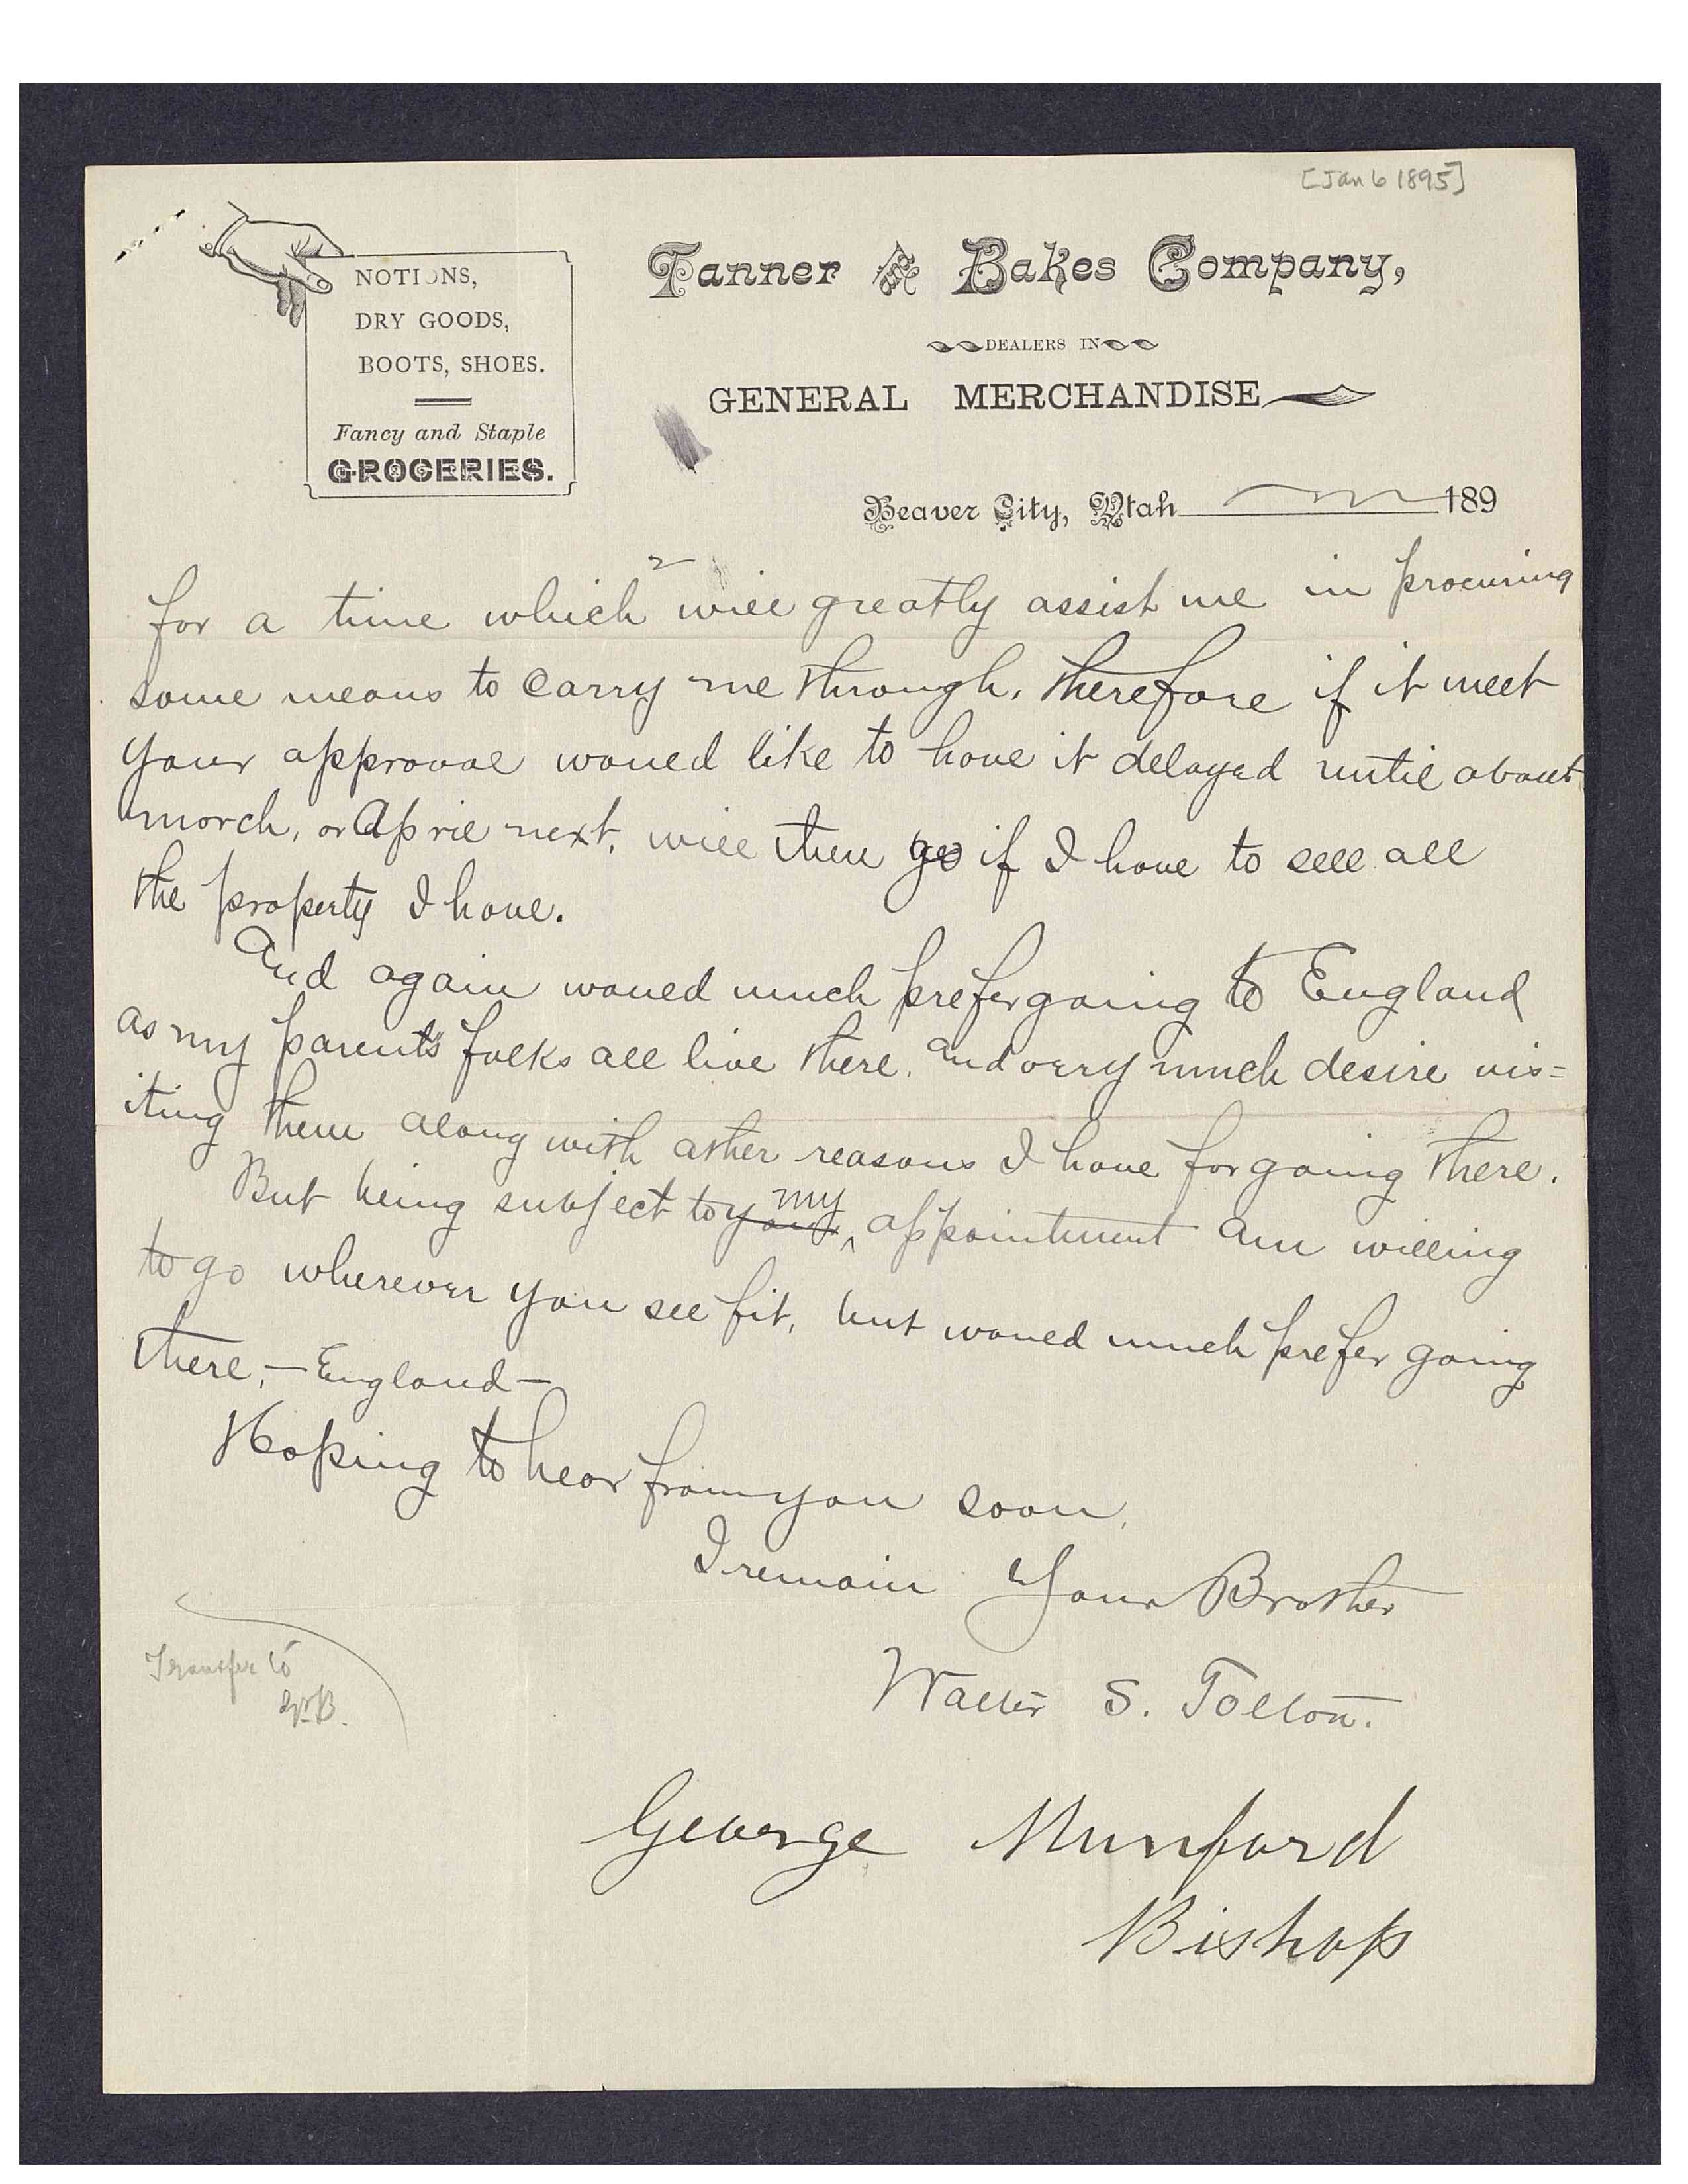 [Jan 6 1895]
NOTIONS,
DRY GOODS,
BOOTS, SHOES.
Fancy and Staple
GROCERIES.
Tanner and Bakes Company,
DEALERS IN
GENERAL MERCHANDISE
Beaver City, Utah 189
2
for a time which will greatly assist me in procuring
some means to carry me through. therefore if it meet
your approval would like to have it delayed until about
march, or April next, will then go if I have to sell all
the property I have.
And again would much prefer going to England
as my parents folks all live there. and very much desire vis=
iting them along with other reasons I have for going there.
But being subject to your my appointment am willing
to go wherever you see fit, but would much prefer going
there, - England -
Hoping to hear from you soon.
I remain Your Brother
Walter S. Tolton.
Transfer to
George Munford
Bishop